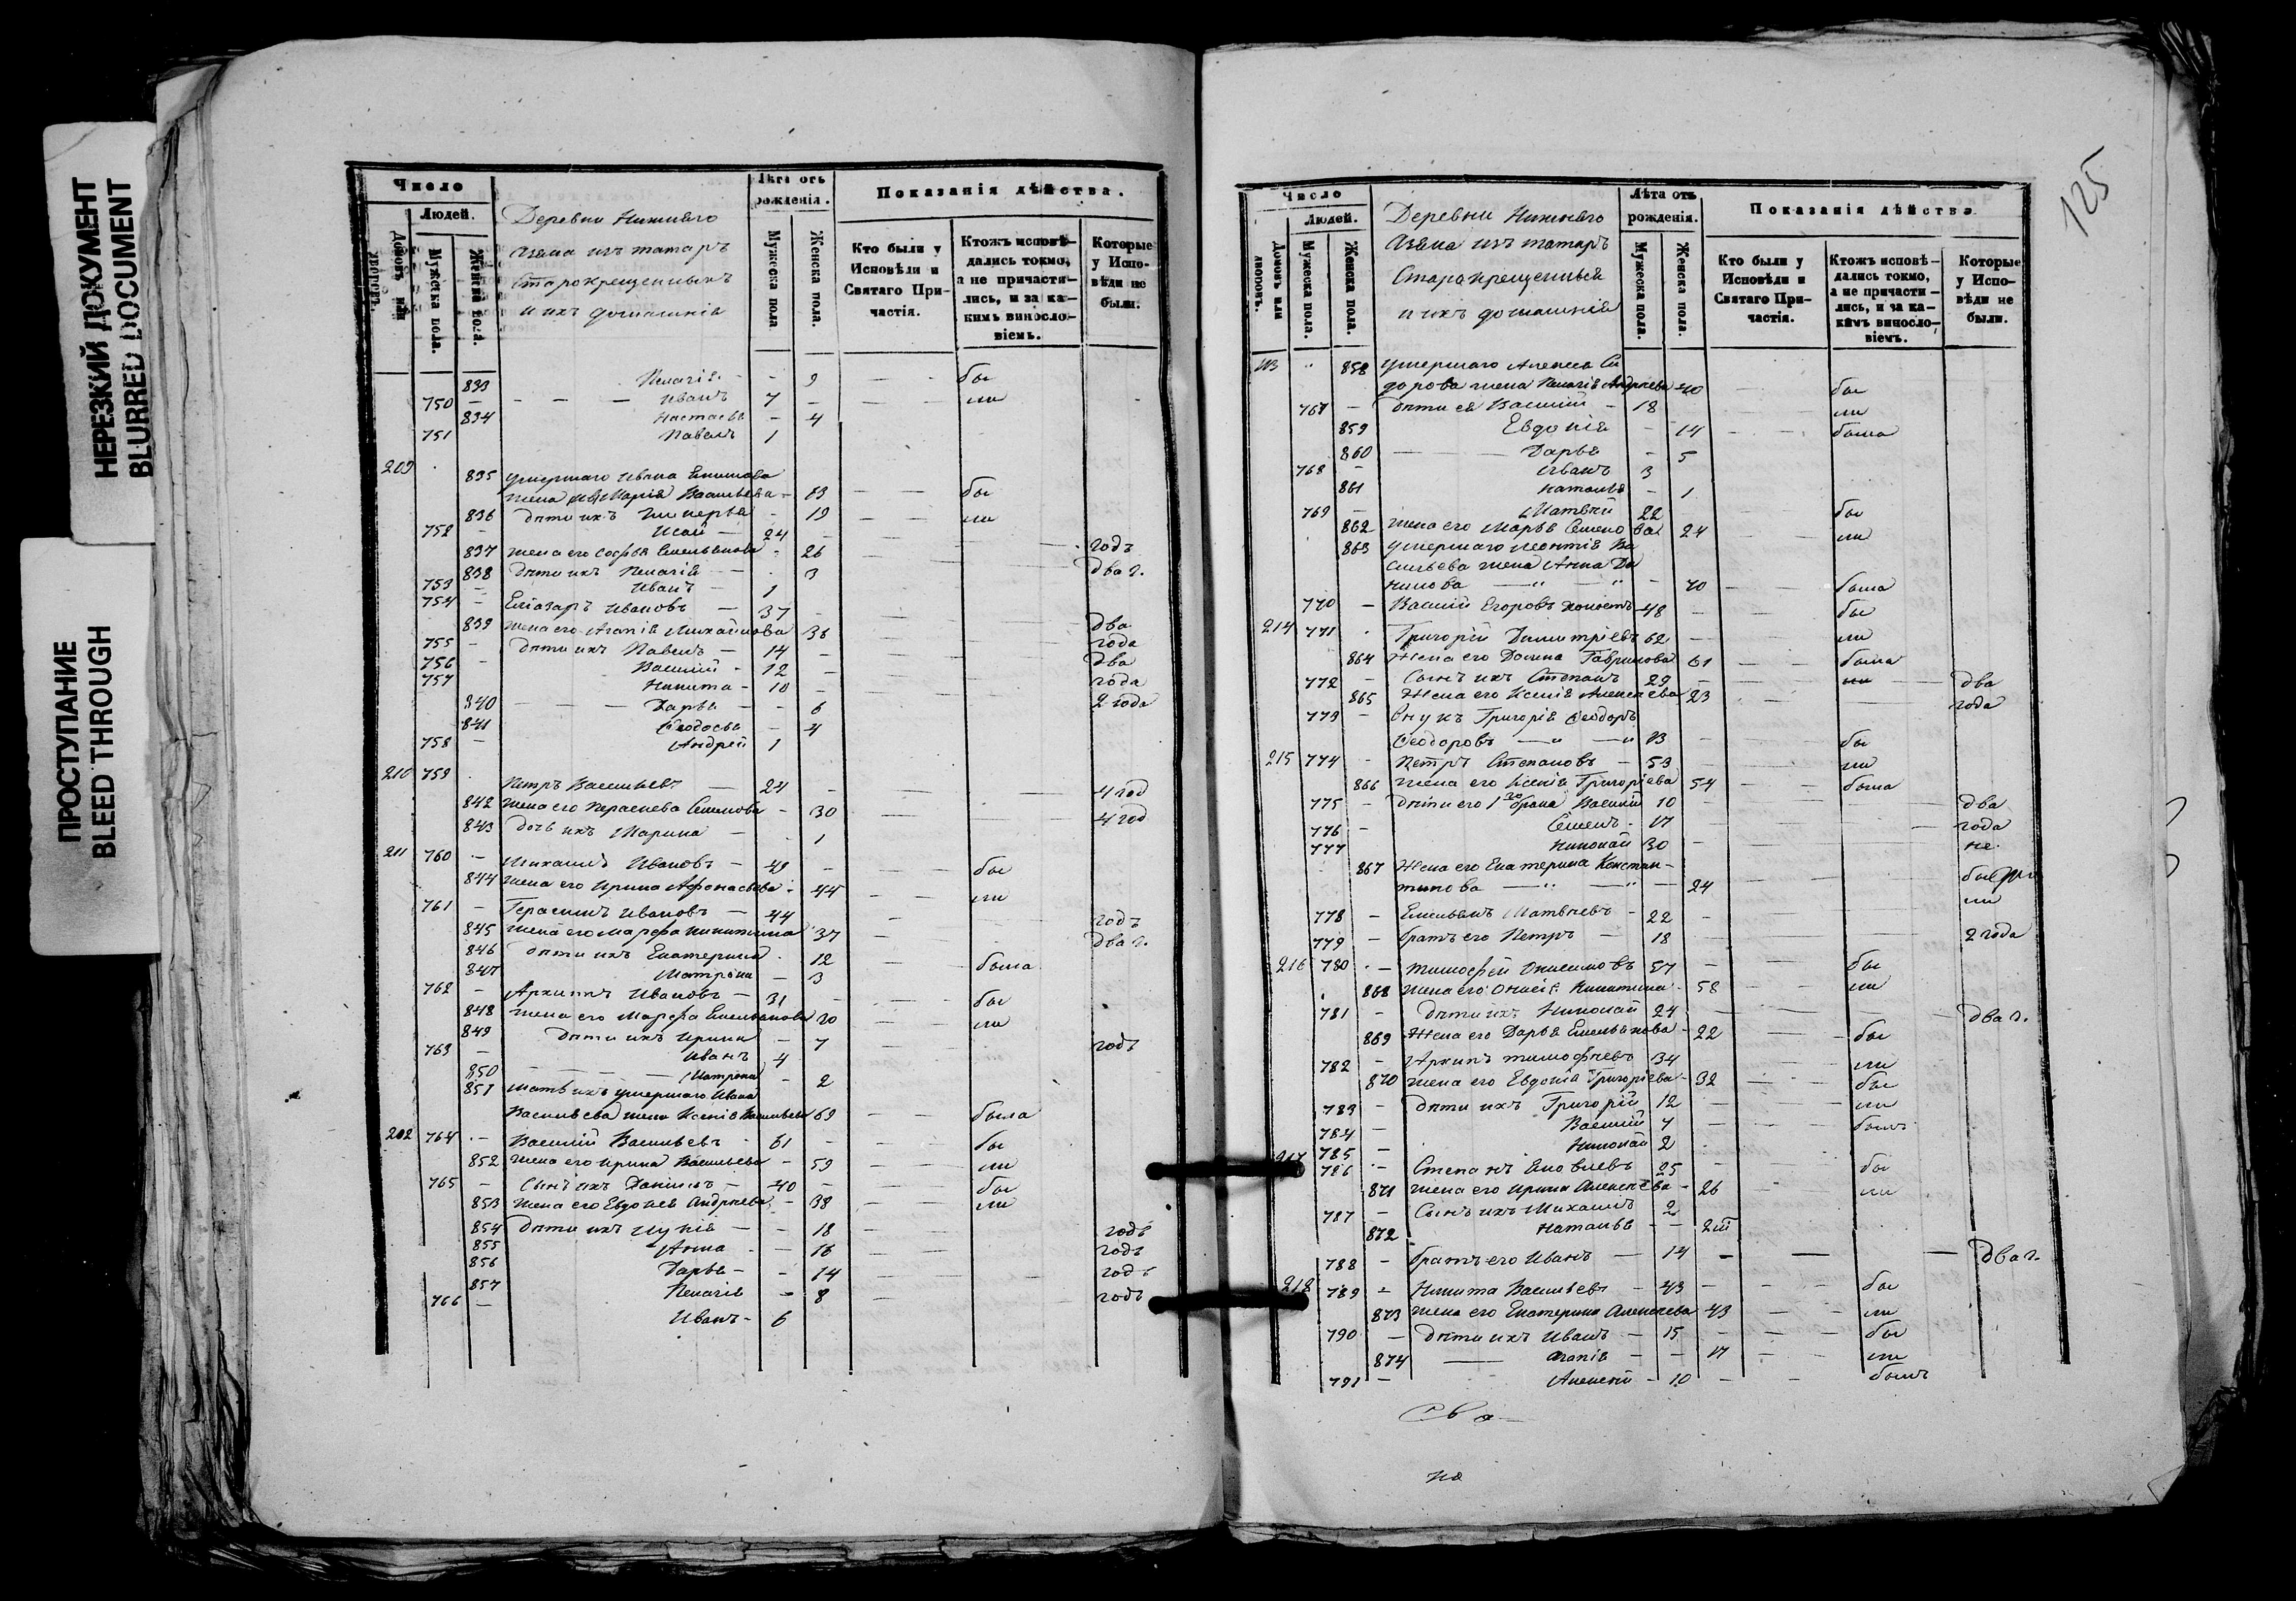 НЕРЕЗКИЙ ДОКУМЕНТ
BLURRED DOCUMENT
ПРОСТУПАНИЕ
BLEED THROUGH
Число
Людей.
Домовъ или дворовъ.
Мужеска пола.
Женска пола.
Деревни Нижняго
Азяка изъ татаръ
Старокрещенныхъ
и ихъ домашнія
Лѣта отъ рожденія.
Мужеска пола
Женска пола.
Показанія дѣйства.
Кто были у Исповѣди и Святаго Причастія.
Ктожъ исповѣдались токмо, а не причастились, и за какимъ винословіемъ.
Которые у Исповѣди не были.
833 Пелагія - - 9 — — бы
750 — — — — Иванъ 7 — — — ли
834 Настасья — 4
751 Павелъ 1
209 835 умершаго Ивана
жена Марія Васильева - 63 — — бы
836 дѣти ихъ - 19 — — ли
752 — Исай — 24 —
837 жена его Софья Емельянова - 26 — — годъ
838 дѣти ихъ Пелагія — 3 два г.
753 — Иванъ — 1
754 — Елиазаръ Ивановъ — 37 —
839 жена его Агапія Михайлова 36 два
755 — дѣти ихъ Павелъ — 14 — года
756 — Василій - 12 — два
757 Никита - 10 — года
840 — — — Дарья — - 6 2 года
841 Ѳеодосья — 4
758 — Андрей 1
210 759 Петръ Васильевъ — 24 — 4 год
842 жена его Параскева Семенова - 30 4 год
843 дочь ихъ Марина — 1
211 760 — Михаилъ Ивановъ — 49 — бы
844 жена его Ирина Афонасьева - 44 ли
761 — Герасимъ Ивановъ — 44 годъ
845 жена его Марфа Никитина 37 — два г.
846 дѣти ихъ Екатерина - 12
847 Матрона — 3 была
762 — Архипъ Ивановъ — 31 бы
848 жена его Марфа Емельянова 30 ли
849 дѣти ихъ Ирина — 7
763 — Иванъ 4 годъ
850 — — — — Матрона - 2
851 мать ихъ умершаго Ивана
Васильева жена Ксенія Васильева 69 — — была
202 764 — Василій Васильевъ - 61 — бы
852 жена его Ирина Васильева - 59 ли
765 — Сынъ ихъ Даніилъ — 40 — бы
853 жена его Евдокія Андреева - 38 ли
854 дѣти ихъ — - 18 годъ
855 Анна - — 16 годъ
856 Дарья — - 14 годъ
857 Пелагія - 8 годъ
766 — Иванъ - 6
125
Число
Людей.
Домовъ или дворовъ.
Мужеска пола.
Женска пола.
Деревни Нижняго
Азяка изъ татаръ
Старокрещенныя
и ихъ домашнія
Лѣта отъ рожденія.
Мужеска пола.
Женска пола.
Показанія дѣйства.
Кто были у Исповѣди и Святаго Причастія.
Ктожъ исповѣдались токмо, а не причастились, и за какимъ винословіемъ.
Которые у Исповѣди не были.
213 " 858 умершаго Алексея Си
дорова жена Пелагія Андреева 40 — бы
767 — дѣти ея Василій - 18 ли
859 Евдокія - 14 — - была
860 — — Дарья - 5
768 — Иванъ 3
861 Наталья - 1
769 — Матвей 22 бы
862 жена его Марья Семено ва 24 — ли
863 умершаго Леонтія Ва
сильева жена Анна Да
нилова — " — " - 70 — была
770 — Василій Егоровъ холостъ 48 - бы
214 771 - Григорій Димитріевъ 62 — ли
864 Жена его Домна Гаврилова 61 — — была
772 — Сынъ ихъ Степанъ 29 — два
865 Жена его Ксенія Алексеева 23 года
773 — внукъ Григорія Ѳеодоръ
Ѳеодоровъ — " — " 13 — бы
215 774 - Петръ Степановъ — 53 — ли
866 жена его Ксенія Григорьева 54 — была
775 — дѣти его 1го брака Василій 10 — два
776 — Семенъ - 17 года
777 Николай 30 — не
867 Жена его Екатерина Констан-
тинова — " — " — 24 бы
ли
778 — Емельянъ Матвеевъ - 22 —
779 — братъ его Петръ — 18 2 года
216 780 - — Тимофей Онисимовъ 57 — бы
868 жена его Никитина 58 ли
781 — дѣти ихъ Николай 24 — два г.
869 Жена его Дарья Емельянова - 22 — бы
782 — Архипъ Тимофеевъ 34 ли
870 жена его Евдокія Григорьева - 32 — бы
783 — дѣти ихъ Григорій 12 — ли
784 — Василій 7 — былъ
785 — Николай 2
217 786 - — Степанъ Яковлевъ 25 бы
871 жена его Ирина Алексеева - 26 ли
787 — Сынъ ихъ Михаилъ 2
872 Наталья — — 2
788 — братъ его Иванъ — 14 — — — два г.
218 789 — Никита Васильевъ — 43 — бы
873 жена его Екатерина Алексеева 43 — ли
790 — дѣти ихъ Иванъ — 15 — — бы
874 — Агапія — — 17 — ли
791 — Алексей — 10 — — былъ
на